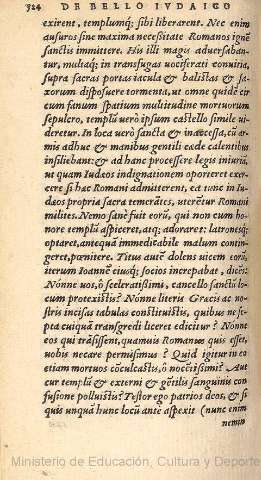 324 DE BELLO IVDAICO
exirent, templumq; sibi liberarent. Nec enim
ausuros sine maxima necessitate Romanos ignē
sanctis immittere. His illi magis aduersaban-
tur, multaq; in transfugas vociferati conuitia,
supra sacras portas iacula & balistas & sa-
xorum disposuere tormenta, ut omne quidē cir
cum fanum spatium multitudine mortuorum
sepulcro, templū verò ipsum castello simile ui-
deretur. In loca verò sancta & inaccessa, cū ar-
mis adhuc & manibus gentili cæde calentibus
insiliebant: & ad hanc processere legis iniuriā,
ut quam Iudæos indignationem oporteret exer-
cere si hæc Romani admitterent, ea tunc in Iu-
dæos propria sacra temerātes, uterētur Romani
milites. Nemo sanè fuit eorū, qui non cum ho-
nore templū aspiceret, atq; adoraret: latronesq;
optaret, antequā immedicabile malum contin-
geret, pœnitere. Titus autē dolens uicem eorū,
iterum Ioannē eiusq; socios increpabat, dicēs:
Nonne uos, ô sceleratissimi, cancello sanctū lo-
cum protexistis? Nonne literis Græcis ac no-
stris incisas tabulas constituistis, quibus ne se-
pta cuiquā transgredi liceret edicitur? Nonne
eos qui trāsissent, quamuis Romanus quis esset,
uobis necare permisimus? Quid igitur in eo
etiam mortuos cōculcastis, ô nocētissimi? Aut
cur templū & externi & gētilis sanguinis con-
fusione polluistis? Testor ego patrios deos, & si
quis unquā hunc locū ante aspexit (nunc enim
nemin
Ministerio de Educación, Cultura y Deporte